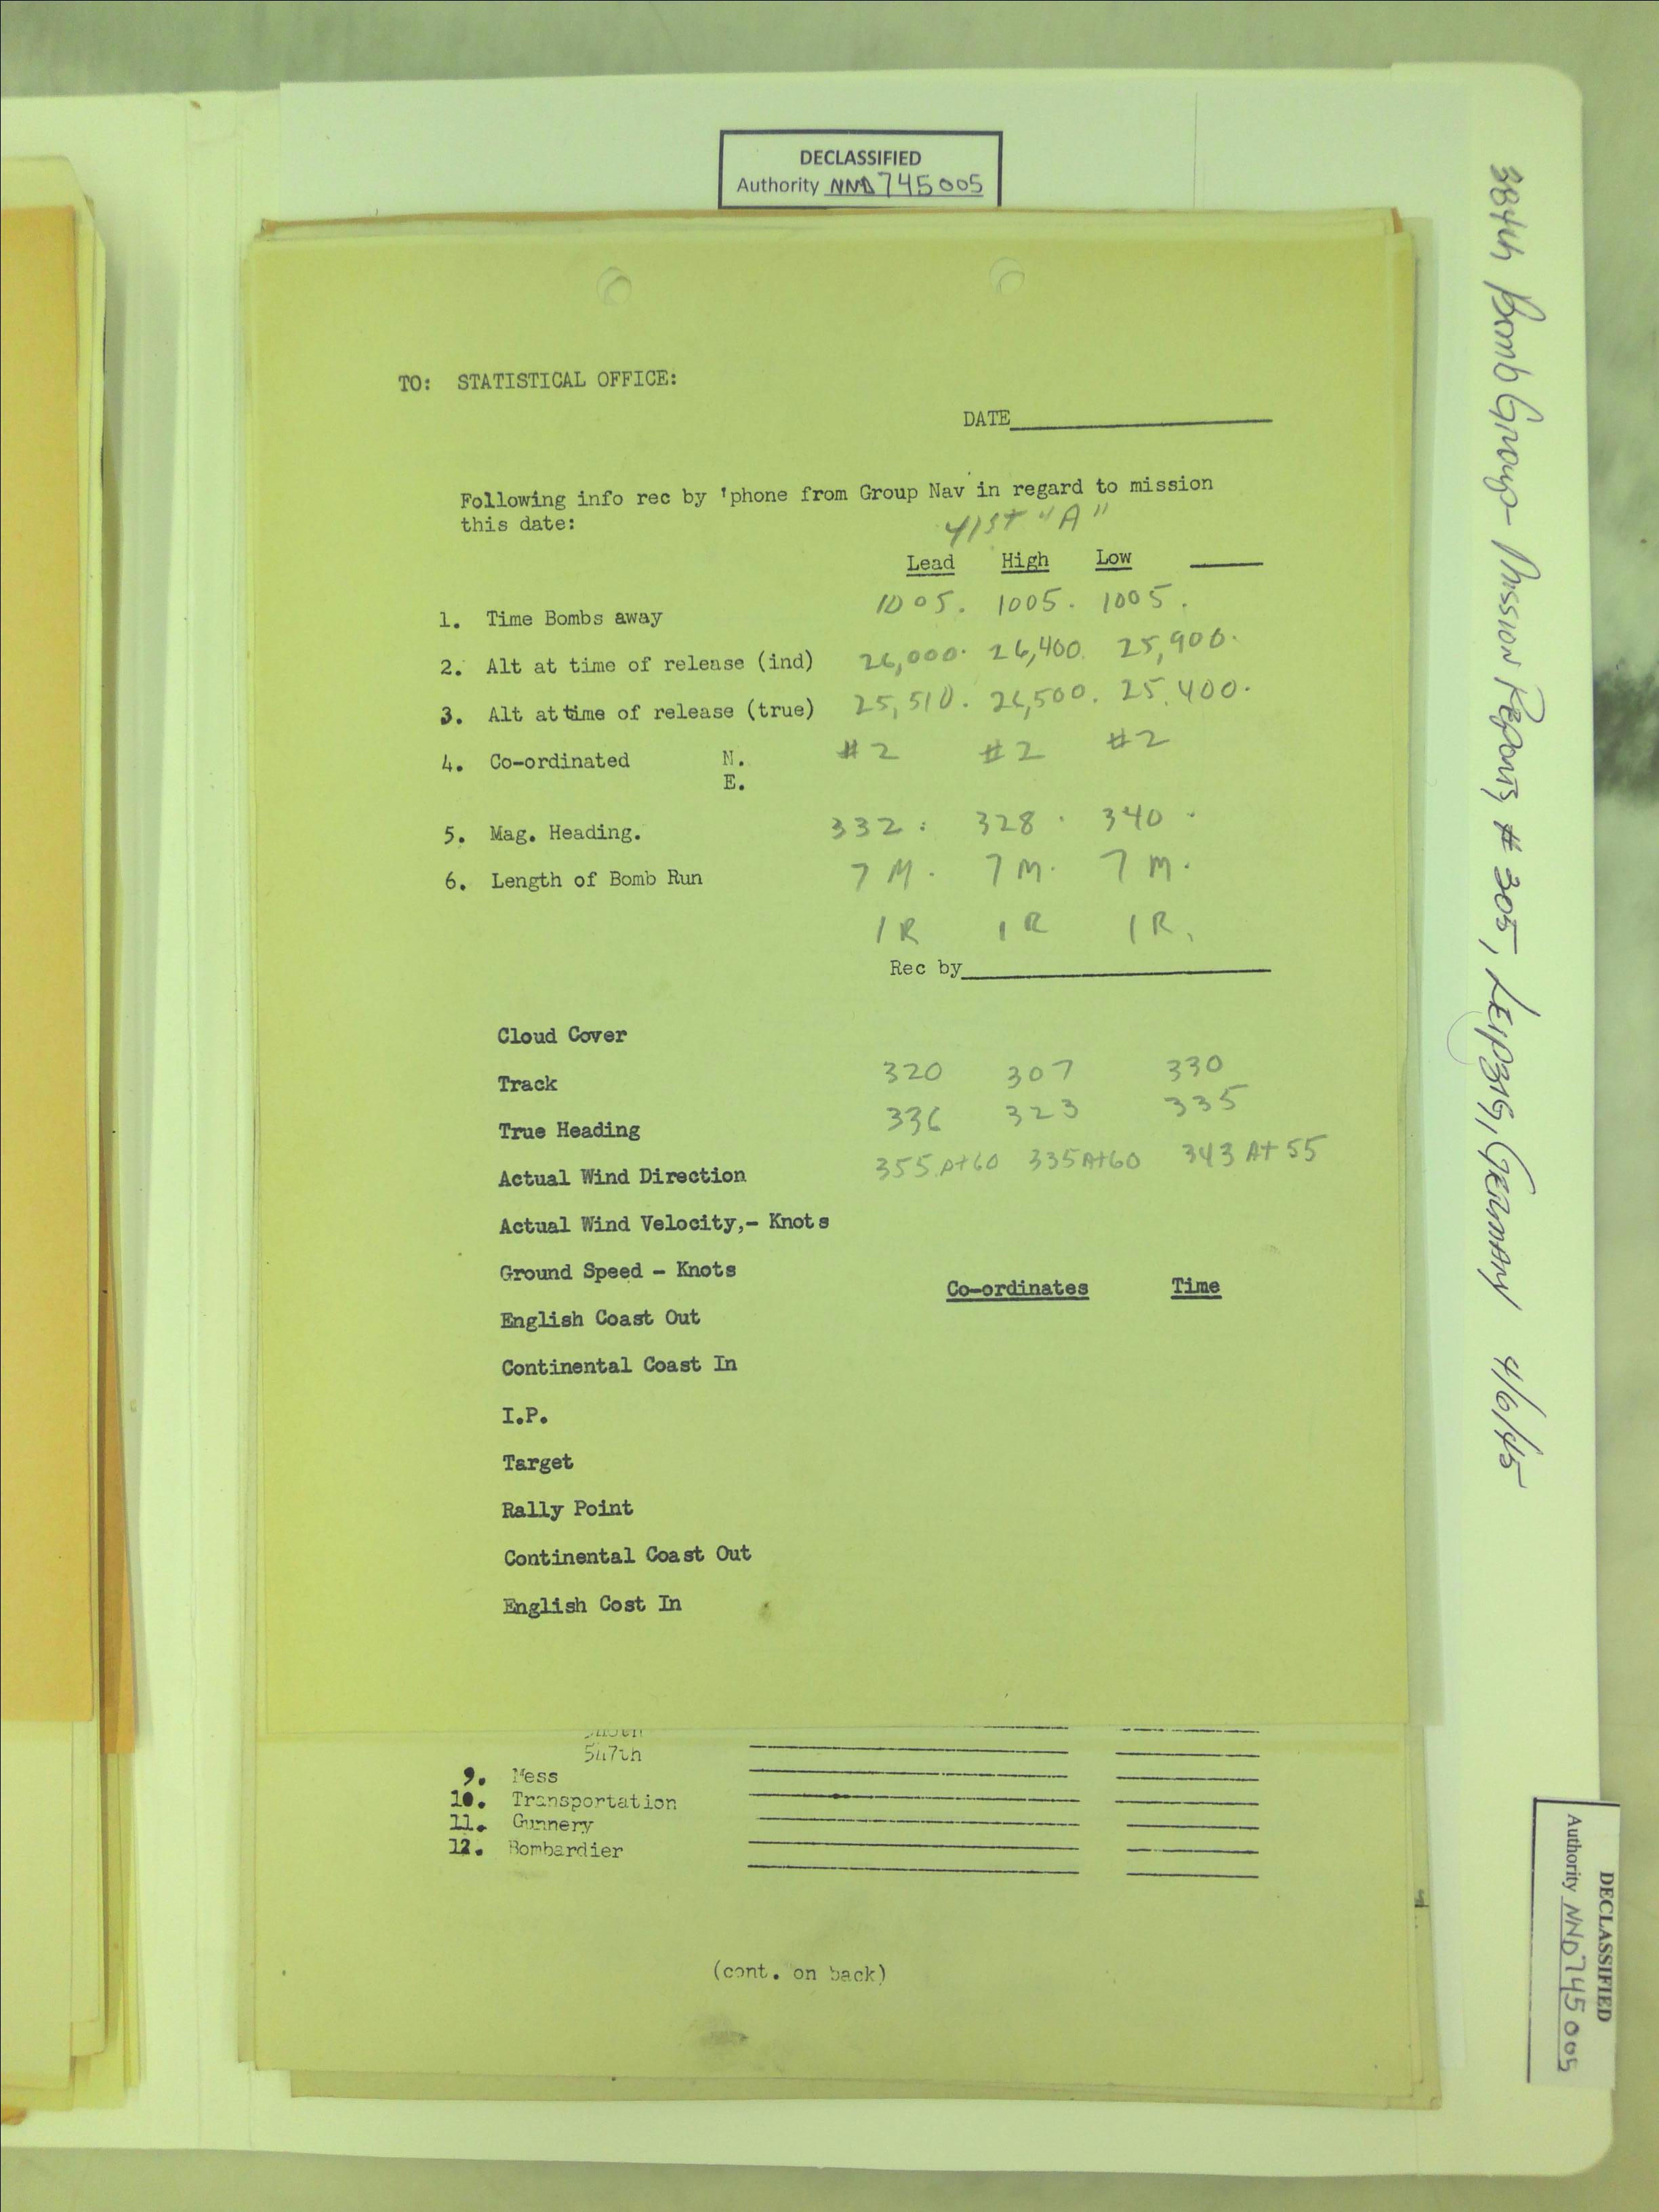 DECLASSIFIED
Authority NND 745005
TO: STATISTICAL OFFICE:
DATE
Following info rec by 'phone from Group Nav in regard to mission
this date:
41st "A"
Lead High Low
1. Time Bombs away 1005. 1005. 1005.
2. Alt at time of release (ind) 26,000. 26,400. 25,900.
3. Alt at time of release (true) 25,510. 26,500. 25,400.
4. Co-ordinated N. #2 #2 #2
E.
5. Mag. Heading. 332. 328. 340.
6. Length of Bomb Run 7 M. 7 M. 7 M.
1 R 1 R 1 R.
Rec by
Cloud Cover
Track 320 307 330
True Heading 336 323 335
Actual Wind Direction 355 At 60 335 At 60 343 At 55
Actual Wind Velocity,- Knots
Ground Speed - Knots
Co-ordinates Time
English Coast Out
Continental Coast In
I.P.
Target
Rally Point
Continental Coast Out
English Cost In
547th
9. Mess
10. Transportation
11. Gunnery
12. Bombardier
(cont. on back)
384th Bomb Group - Mission Reports, # 305, Leipzig, Germany 4/6/45
DECLASSIFIED
Authority NND 745005